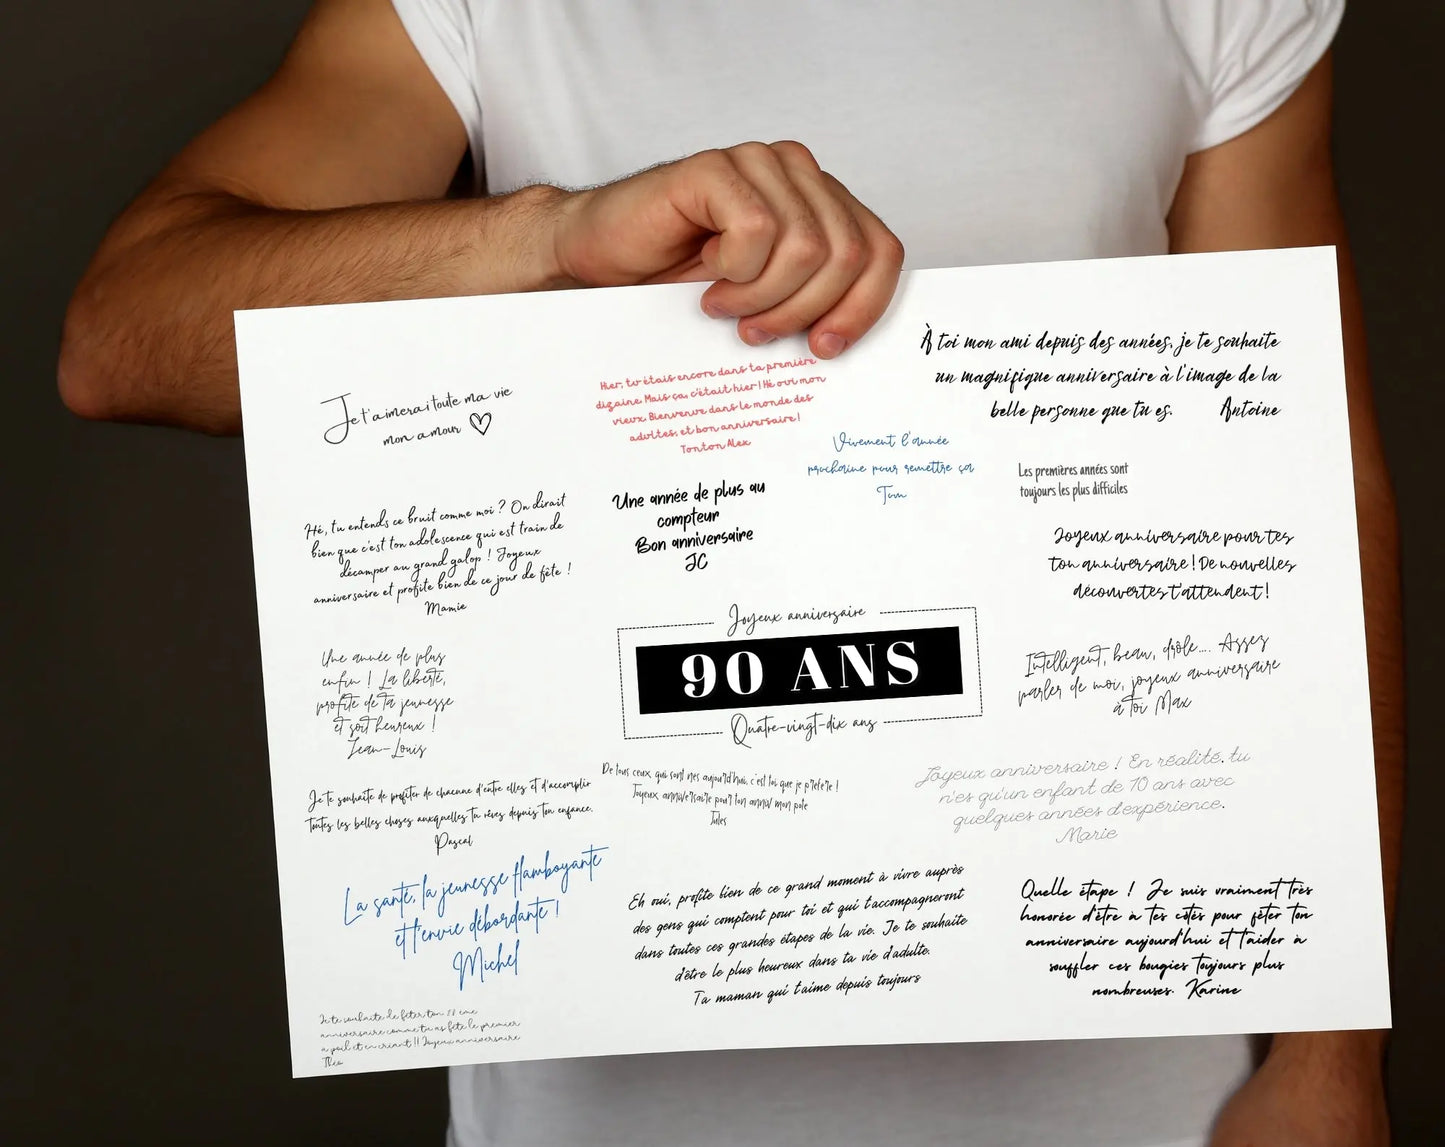 Je t'aimerai toute ma vie
mon amour
Hier, tu étais encore dans ta première
dizaine. Mais ça, c'était hier ! Hé oui mon
vieux. Bienvenue dans le monde des
adultes, et bon anniversaire !
Tonton Alex
À toi mon ami depuis des années, je te souhaite
un magnifique anniversaire à l'image de la
belle personne que tu es. Antoine
Vivement l'année
prochaine pour remettre ça
Tom
Les premières années sont
toujours les plus difficiles
Hé, tu entends ce bruit comme moi ? On dirait
bien que c'est ton adolescence qui est train de
décamper au grand galop ! Joyeux
anniversaire et profite bien de ce jour de fête !
Mamie
Une année de plus au
compteur
Bon anniversaire
JC
Joyeux anniversaire pour tes
ton anniversaire ! De nouvelles
découvertes t'attendent !
Joyeux anniversaire
90 ANS
Quatre-vingt-dix ans
Une année de plus
enfin ! La liberté,
profite de ta jeunesse
et soit heureux !
Jean-Louis
Intelligent, beau, drôle.... Assez
parler de moi, joyeux anniversaire
à toi Max
Je te souhaite de profiter de chacune d'entre elles et d'accomplir
toutes les belles choses auxquelles tu rêves depuis ton enfance.
Pascal
De tous ceux, qui sont nés aujourd'hui, c'est toi que je préfère !
Joyeux anniversaire pour ton anniv mon pote
Jules
Joyeux anniversaire ! En réalité, tu
n'es qu'un enfant de 10 ans avec
quelques années d'expérience.
Marie
La santé, la jeunesse flamboyante
et l'envie débordante !
Michel
Eh oui, profite bien de ce grand moment à vivre auprès
des gens qui comptent pour toi et qui t'accompagneront
dans toutes ces grandes étapes de la vie. Je te souhaite
d'être le plus heureux dans ta vie d'adulte.
Ta maman qui t'aime depuis toujours
Quelle étape ! Je suis vraiment très
honorée d'être à tes côtés pour fêter ton
anniversaire aujourd'hui et t'aider à
souffler ces bougies toujours plus
nombreuses. Karine
Je te souhaite de fêter ton 18 ème
anniversaire comme tu as fêté le premier
à poil et en criant !! Joyeux anniversaire
Théo